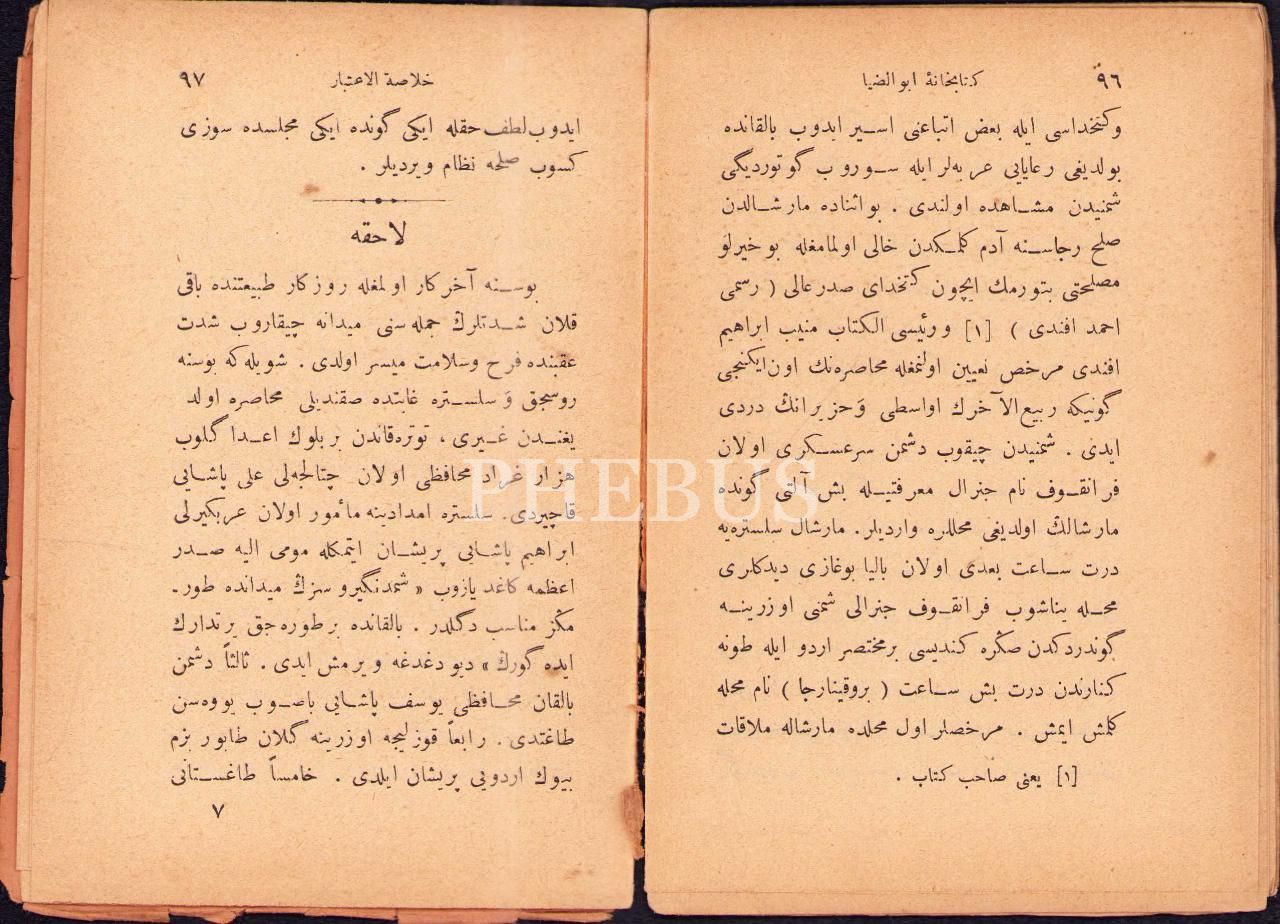 كتابخانهٔ ابوالضيا ٩٦
وكتخداسی ايله بعض اتباعنی اسير ايدوب بالقانده
بولديغی رعايايی عربه‌لر ايله سوروب گوتورديگی
شمنيدن مشاهده اولندی . بو اثناده مارشالدن
صلح رجاسنه آدم كلمكدن خالی اولمامغله بو خيرلو
مصلحتی بتورمك ايچون كتخدای صدرعالی ( رسمی
احمد افندی ) [١] و رئيسی الكتاب منيب ابراهيم
افندی مرخص تعيين اولنمغله محاصره‌نك اون‌ايكنجی
گونيكه ربيع‌الآخرك اواسطی وَحزيرانڭ دردی
ايدی . شمنيدن چيقوب دشمن سرعسكری اولان
فرانقوف نام جنرال معرفتيله بش آلتی گونده
مارشالڭ اولديغی محللره وارديلر . مارشال سلستره‌يه
درت ساعت بعدی اولان باليا بوغازی ديدكلری
محله يناشوب فرانقوف جنرالی شمنی اوزرينه
گوندردكدن صڭره كنديسی برمختصر اردو ايله طونه
كنارندن درت بش ساعت ( بروقينارجا ) نام محله
كلمش ايمش . مرخصلر اول محلده مارشاله ملاقات
[١] يعنی صاحب كتاب .
خلاصة الاعتبار ٩٧
ايدوب لطف حقله ايكی گونده ايكی مجلسده سوزی
كسوب صلحه نظام ويرديلر .
لاحقه
بوسنه آخر كار اولمغله روزكار طبيعتنده باقی
قلان شدتلرڭ جمله‌سنی ميدانه چيقاروب شدت
عقبنده فرح وسلامت ميسر اولدی . شويله‌كه بوسنه
روسجق وَ سلستره غايتده صقنديلی محاصره اولد
يغندن غيری ، توتره‌قاندن بربلوك اعدا گلوب
هزارغراد محافظی اولان چتالجه‌لی علی پاشايی
قاچيردی . سلستره امدادينه مأمور اولان عربكيرلی
ابراهيم پاشايی پريشان ايتمكله مومی اليه صدر
اعظمه كاغد يازوب « شمدنگيرو سزڭ ميدانده طور-
مڭز مناسب دگلدر . بالقانده برطوره‌جق يرتدارك
ايده گورڭ » ديو دغدغه ويرمش ايدی . ثالثاً دشمن
بالقان محافظی يوسف پاشايی باصوب يووه‌سن
طاغتدی . رابعاً قوزليجه اوزرينه گلان طابور بزم
بيوك اردويی پريشان ايلدی . خامساً طاغستانی
٧
PHEBUS